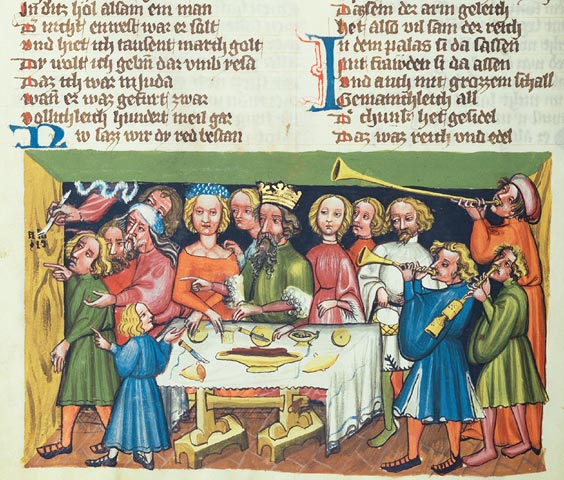 In ditz hol alsam ein man
nicht enwest war er solt
Vnd hiet ich tausent march golt
Dy wolt ich gebn dar vmb
Daz ich war in Juda
Wan er waz gefurt zwar
Vollichleich hundert meil gar
Nv saz wir dy red bestan
der arm geleich
Het also vil sam der reich
In dem palas si da sassen
Mit frawden si da assen
Vnd auch mit grozzem schall
Gemainchleich all
chunik het gesidel
Daz waz reich vnd edel